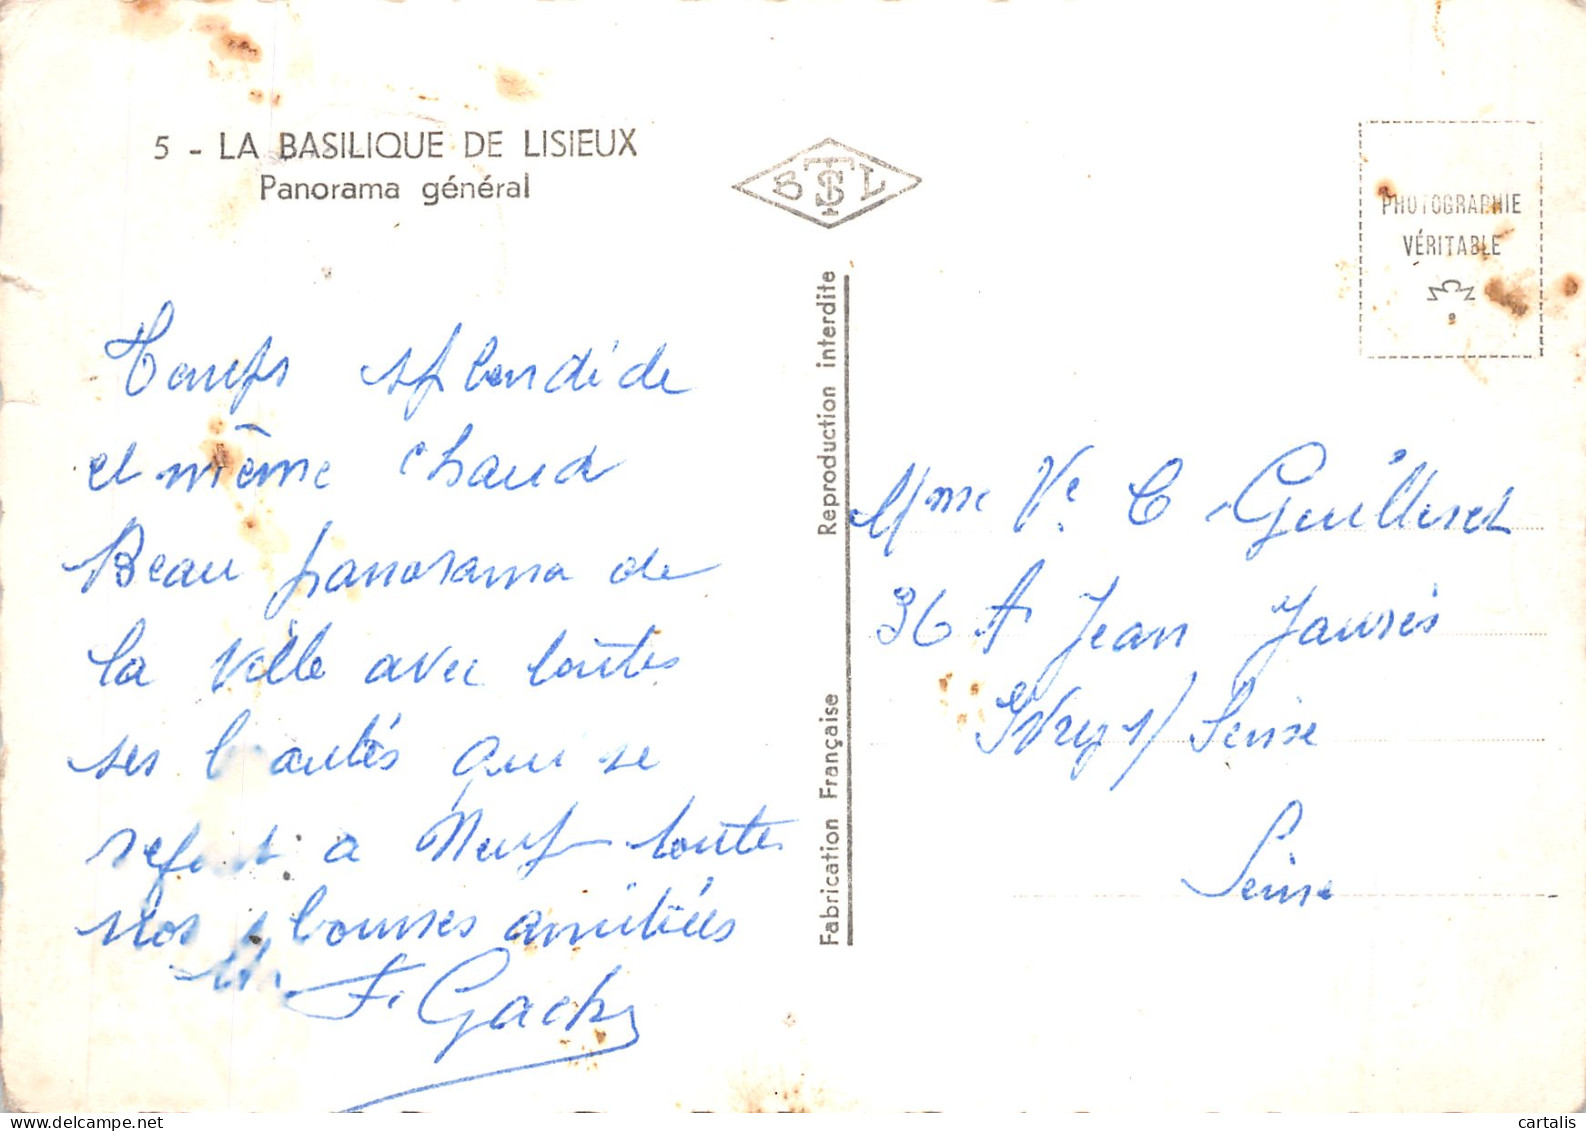 5 - LA BASILIQUE DE LISIEUX
Panorama général
Temps splendide
et même chaud
Beau panorama de
la ville avec toutes
ses beautés qui se
refont a Neuf toutes
nos bonnes amitiées
F. Gach
S T S L
Reproduction interdite
Fabrication Française
PHOTOGRAPHIE
VÉRITABLE
Mme Ve C Guilleret
36 A Jean Jaurès
Ivry s/ Seine
Seine
delcampe.net
cartalis